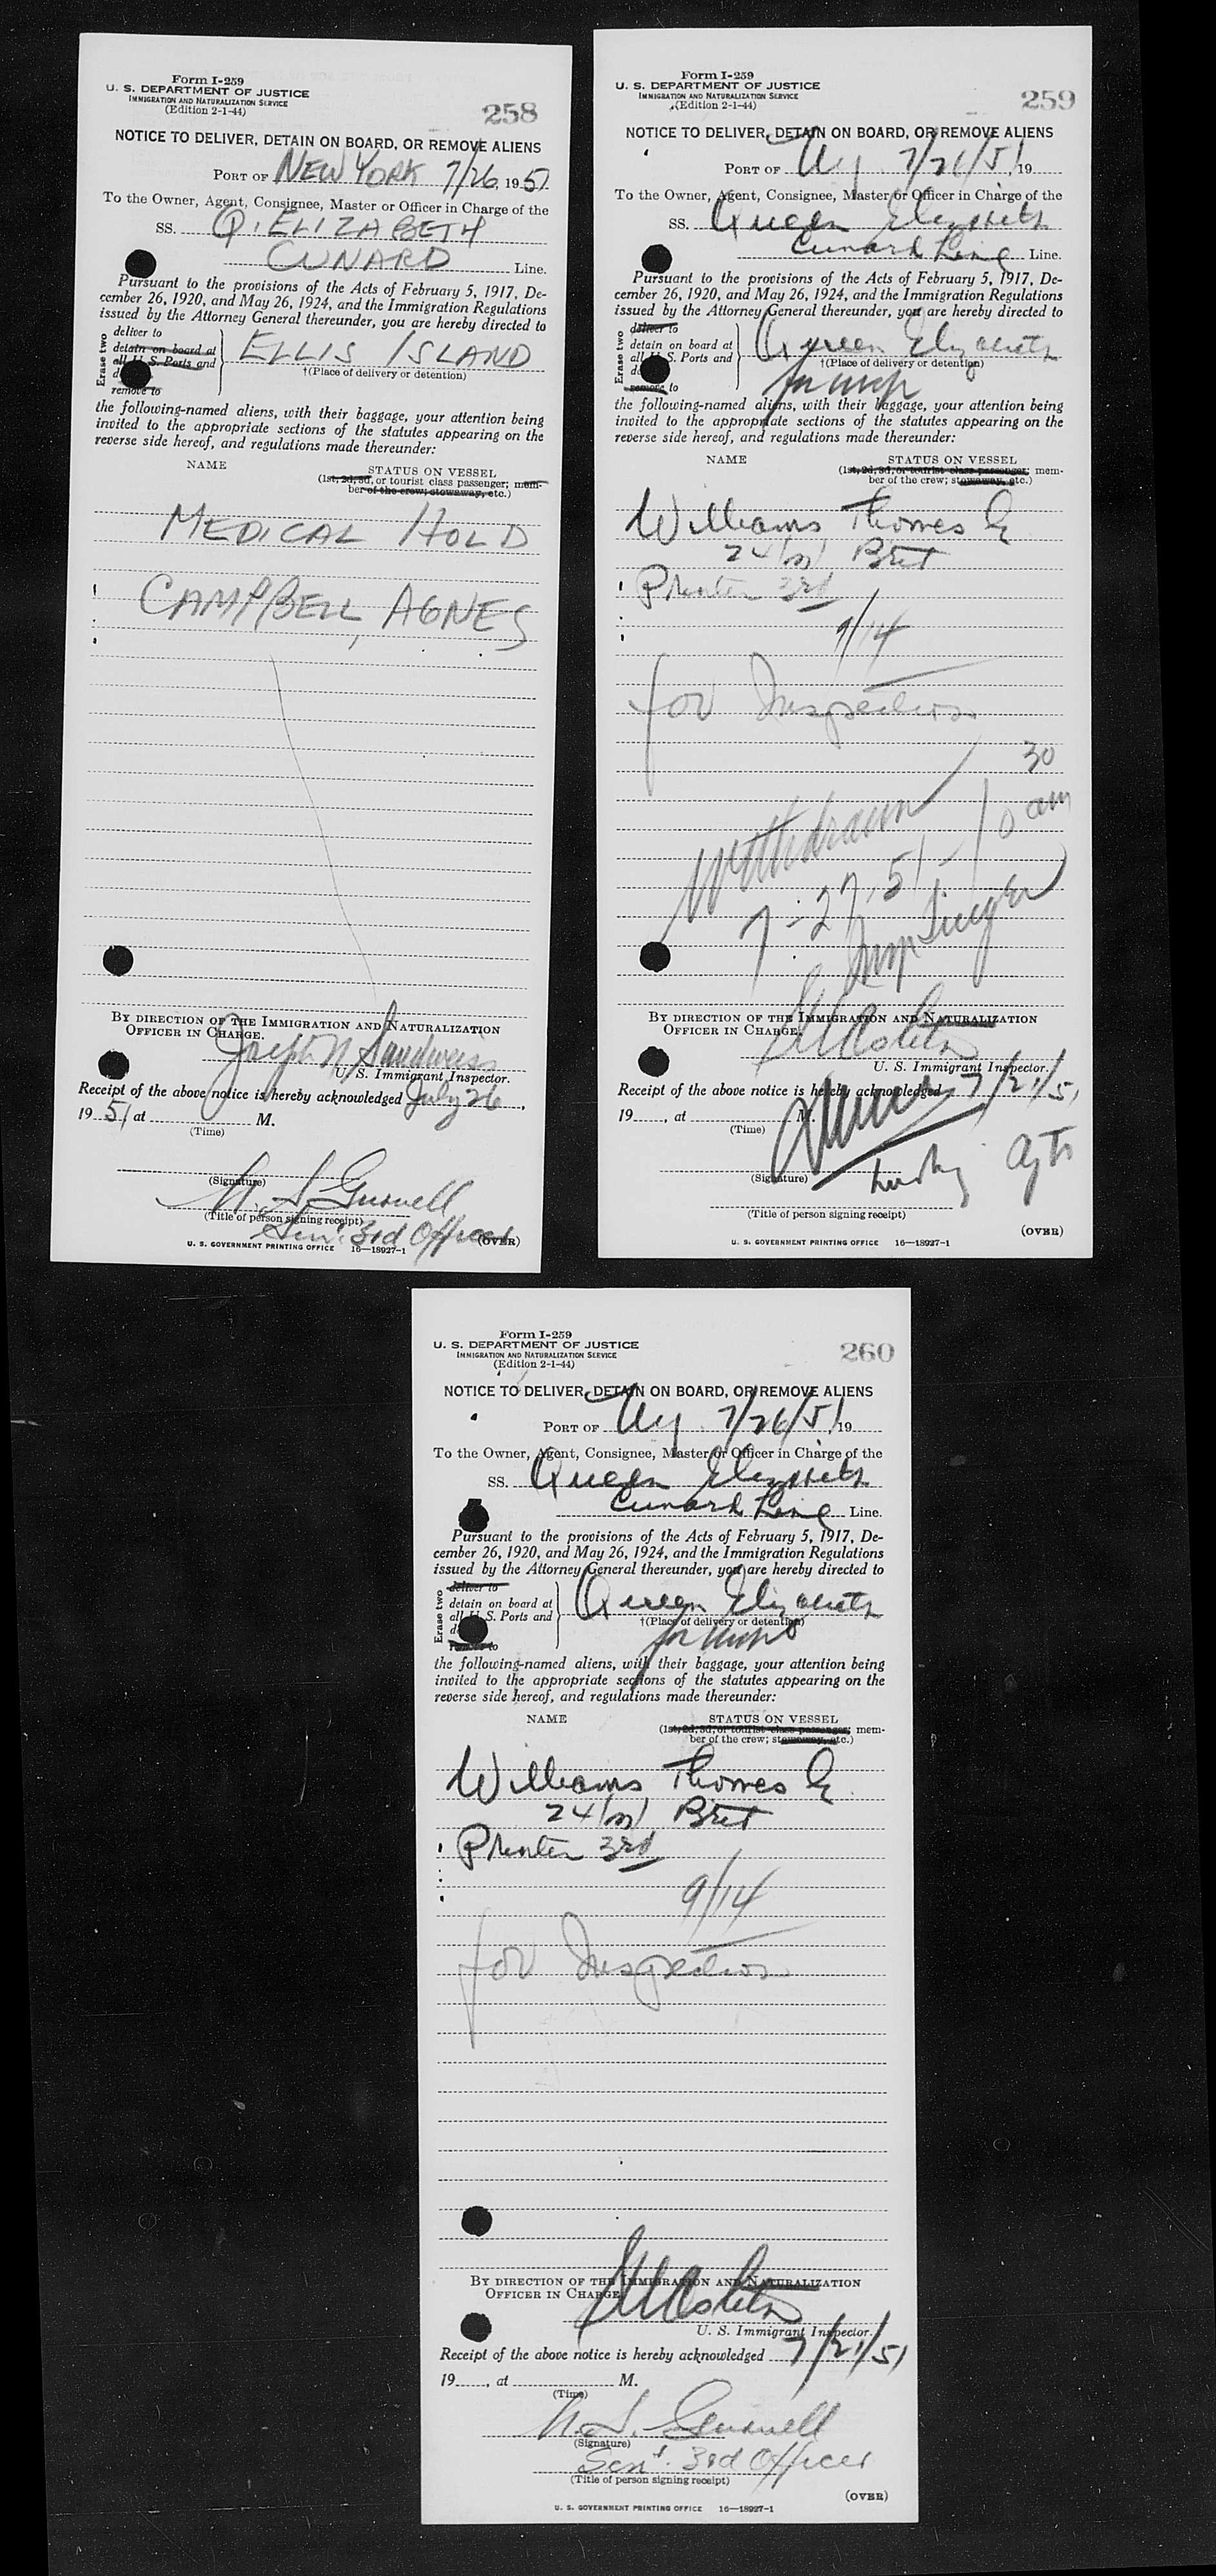 Form I-259
U. S. DEPARTMENT OF JUSTICE
IMMIGRATION AND NATURALIZATION SERVICE
(Edition 2-1-44)
258
NOTICE TO DELIVER, DETAIN ON BOARD, OR REMOVE ALIENS
PORT OF NEW YORK 7/26, 1951
To the Owner, Agent, Consignee, Master or Officer in Charge of the
SS. Q. ELIZABETH
CUNARD Line.
Pursuant to the provisions of the Acts of February 5, 1917, De-
cember 26, 1920, and May 26, 1924, and the Immigration Regulations
issued by the Attorney General thereunder, you are hereby directed to
Erase two
deliver to
detain on board at
all U. S. Ports and
remove to
ELLIS ISLAND
†(Place of delivery or detention)
the following-named aliens, with their baggage, your attention being
invited to the appropriate sections of the statutes appearing on the
reverse side hereof, and regulations made thereunder:
NAME STATUS ON VESSEL
(1st, 2d, 3d, or tourist class passenger; mem-
ber of the crew; stowaway, etc.)
MEDICAL HOLD
CAMPBELL, AGNES
BY DIRECTION OF THE IMMIGRATION AND NATURALIZATION
OFFICER IN CHARGE.
Joseph N Sandweiss
U. S. Immigrant Inspector.
Receipt of the above notice is hereby acknowledged July 26,
1951 at M.
(Time)
(Signature)
N. S.
(Title of person signing receipt)
Senr. 3rd Officer
(OVER)
U. S. GOVERNMENT PRINTING OFFICE 16—18927-1
Form I-259
U. S. DEPARTMENT OF JUSTICE
IMMIGRATION AND NATURALIZATION SERVICE
(Edition 2-1-44)
259
NOTICE TO DELIVER, DETAIN ON BOARD, OR REMOVE ALIENS
PORT OF NY 7/26/51, 19
To the Owner, Agent, Consignee, Master or Officer in Charge of the
SS. Queen Elizabeth
Cunard Line Line.
Pursuant to the provisions of the Acts of February 5, 1917, De-
cember 26, 1920, and May 26, 1924, and the Immigration Regulations
issued by the Attorney General thereunder, you are hereby directed to
Erase two
deliver to
detain on board at
all U. S. Ports and
remove to
Queen Elizabeth
†(Place of delivery or detention)
for insp
the following-named aliens, with their baggage, your attention being
invited to the appropriate sections of the statutes appearing on the
reverse side hereof, and regulations made thereunder:
NAME STATUS ON VESSEL
(1st, 2d, 3d, or tourist class passenger; mem-
ber of the crew; stowaway, etc.)
Williams Thomas G
24/m Brit
Printer 3rd
9/14
for Inspection
Withdrawn
7-27-51 - 10 30 am
Insp
BY DIRECTION OF THE IMMIGRATION AND NATURALIZATION
OFFICER IN CHARGE.
U. S. Immigrant Inspector.
Receipt of the above notice is hereby acknowledged 7/21/51
19, at M.
(Time)
(Signature)
(Title of person signing receipt)
(OVER)
U. S. GOVERNMENT PRINTING OFFICE 16—18927-1
Form I-259
U. S. DEPARTMENT OF JUSTICE
IMMIGRATION AND NATURALIZATION SERVICE
(Edition 2-1-44)
260
NOTICE TO DELIVER, DETAIN ON BOARD, OR REMOVE ALIENS
PORT OF NY 7/26/51, 19
To the Owner, Agent, Consignee, Master or Officer in Charge of the
SS. Queen Elizabeth
Cunard Line Line.
Pursuant to the provisions of the Acts of February 5, 1917, De-
cember 26, 1920, and May 26, 1924, and the Immigration Regulations
issued by the Attorney General thereunder, you are hereby directed to
Erase two
deliver to
detain on board at
all U. S. Ports and
remove to
Queen Elizabeth
†(Place of delivery or detention)
for insp
the following-named aliens, with their baggage, your attention being
invited to the appropriate sections of the statutes appearing on the
reverse side hereof, and regulations made thereunder:
NAME STATUS ON VESSEL
(1st, 2d, 3d, or tourist class passenger; mem-
ber of the crew; stowaway, etc.)
Williams Thomas G
24/m Brit
Printer 3rd
9/14
for Inspection
BY DIRECTION OF THE IMMIGRATION AND NATURALIZATION
OFFICER IN CHARGE
U. S. Immigrant Inspector.
Receipt of the above notice is hereby acknowledged 7/21/51
19, at M.
(Time)
N. S.
(Signature)
Senr. 3rd Officer
(Title of person signing receipt)
(OVER)
U. S. GOVERNMENT PRINTING OFFICE 16—18927-1